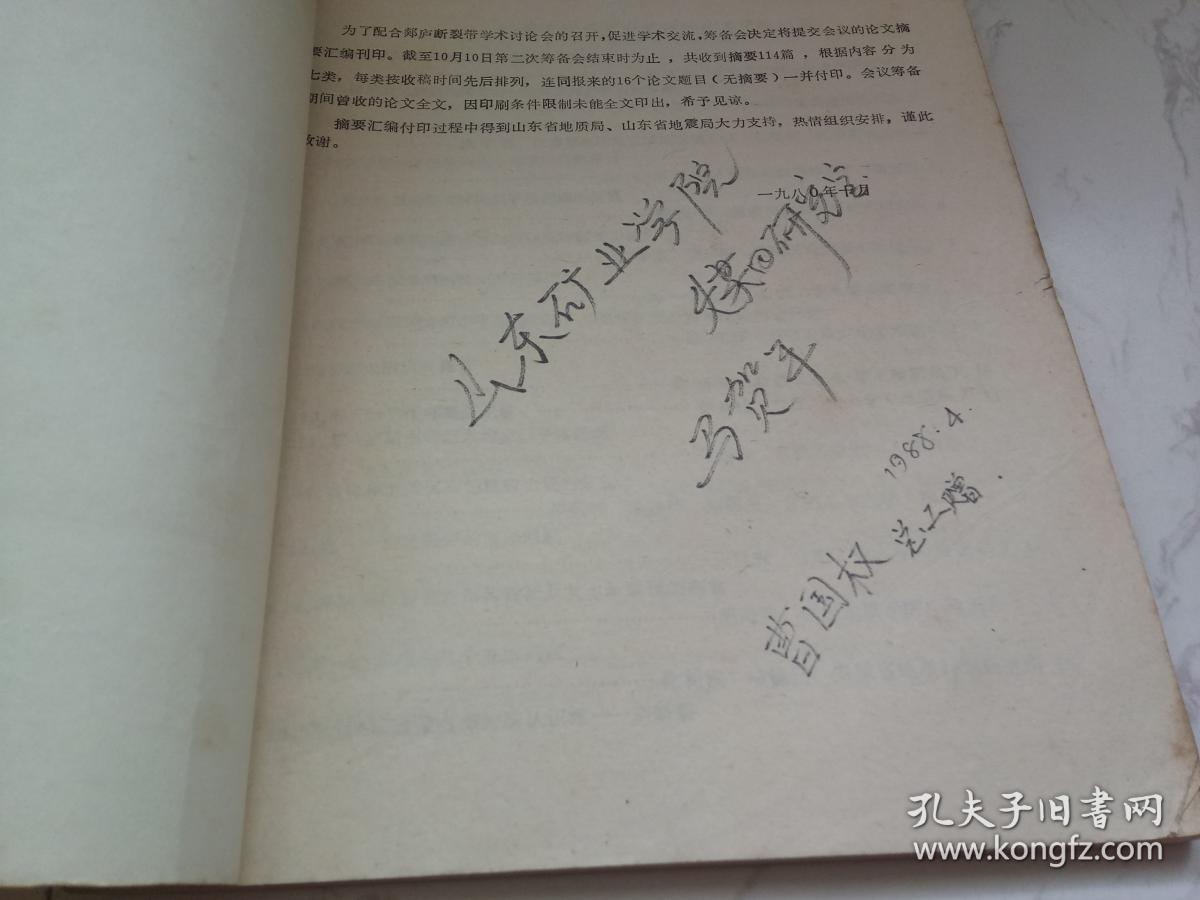 为了配合郯庐断裂带学术讨论会的召开,促进学术交流,筹备会决定将提交会议的论文摘
要汇编刊印。截至10月10日第二次筹备会结束时为止,共收到摘要114篇,根据内容分为
七类,每类按收稿时间先后排列,连同报来的16个论文题目(无摘要)一并付印。会议筹备
期间曾收的论文全文,因印刷条件限制未能全文印出,希予见谅。
摘要汇编付印过程中得到山东省地质局、山东省地震局大力支持,热情组织安排,谨此
致谢。
一九八〇年十月
山东矿业学院
煤田研究室
马贺平
1988.4.
曹国权总工赠.
孔夫子旧书网
www.kongfz.com